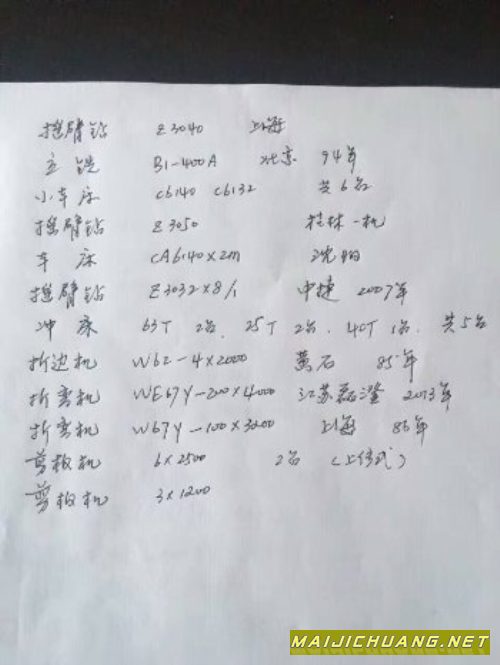 摇臂钻 Z3040 上海
立铣 B1-400A 北京 94年
小车床 C6140 C6132 共6台
摇臂钻 Z3050 桂林一机
车床 CA6140×2m 沈阳
摇臂钻 Z3032×8/1 中捷 2007年
冲床 63T 2台、25T 2台、40T 1台、共5台
折边机 W62-4×2000 黄石 85年
折弯机 WE67Y-200×4000 江苏 2013年
折弯机 W67Y-100×3200 上海 86年
剪板机 6×2500 2台 (上传式)
剪板机 3×1200
MAIJICHUANG.NET